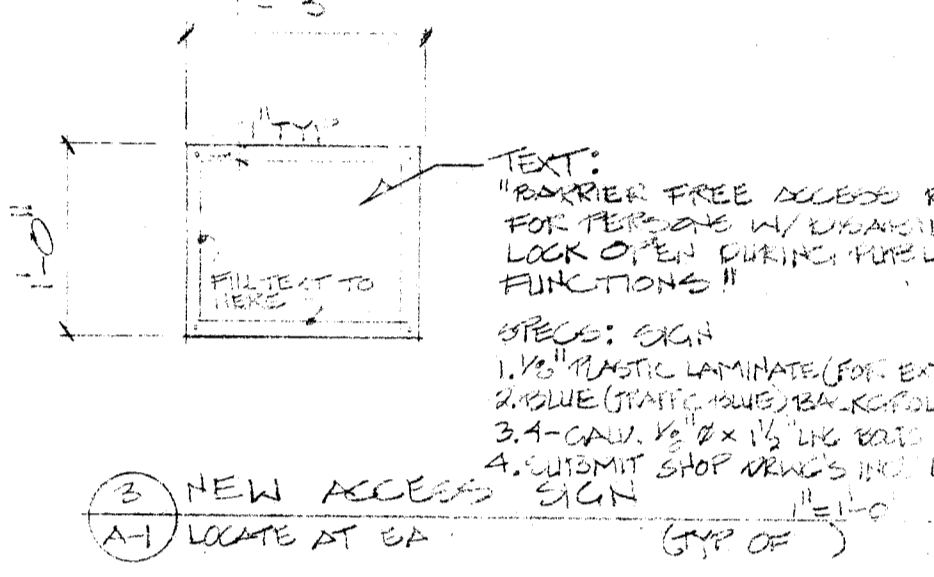 1'-3"
1" TYP
1'-0"
FILL TEXT TO
HERE
TEXT:
"BARRIER FREE ACCESS
FOR PERSONS W/
LOCK OPEN DURING
FUNCTIONS"
SPECS: SIGN
1. 1/8" PLASTIC LAMINATE (FOR
2. BLUE (TRAFFIC BLUE)
3. 4-GALV. Ø x LNG BOLTS
4. SUBMIT SHOP DRWG'S
3 NEW ACCESS SIGN
1"=1'-0"
A-1 LOCATE AT EA (TYP OF )